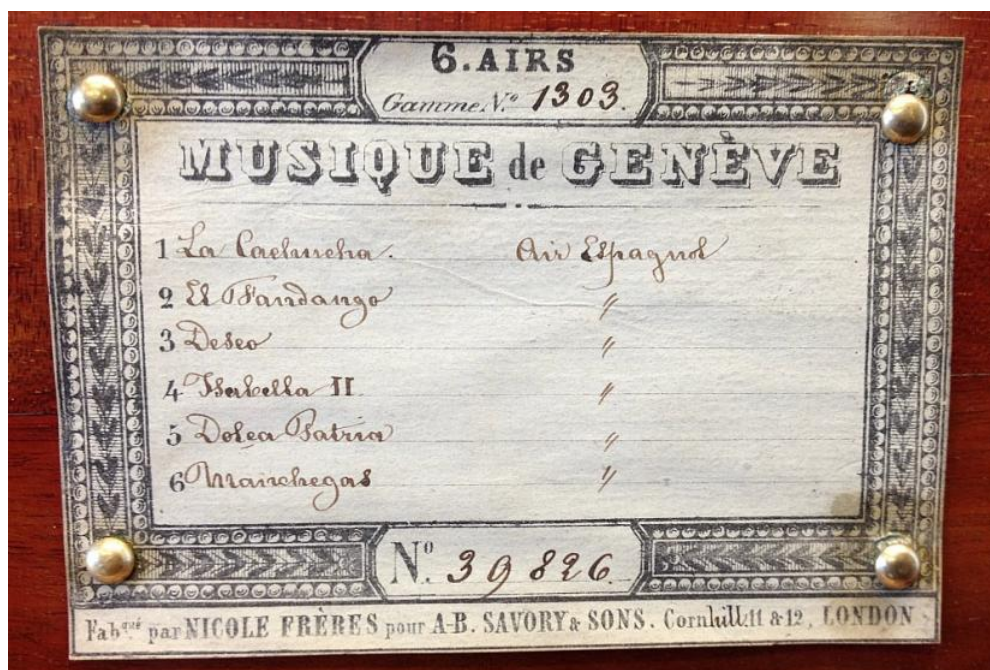 6. AIRS
Gamme N.º 1303.
MUSIQUE de GENÈVE
1 La Cachucha. Air Espagnol
2 El Fandango "
3 Deseo "
4 Isabella II "
5 Dolea Patria "
6 Manchegas "
Nº. 39826.
Fabqué par NICOLE FRÈRES pour A-B. SAVORY & SONS. Cornhill. 11 & 12, LONDON